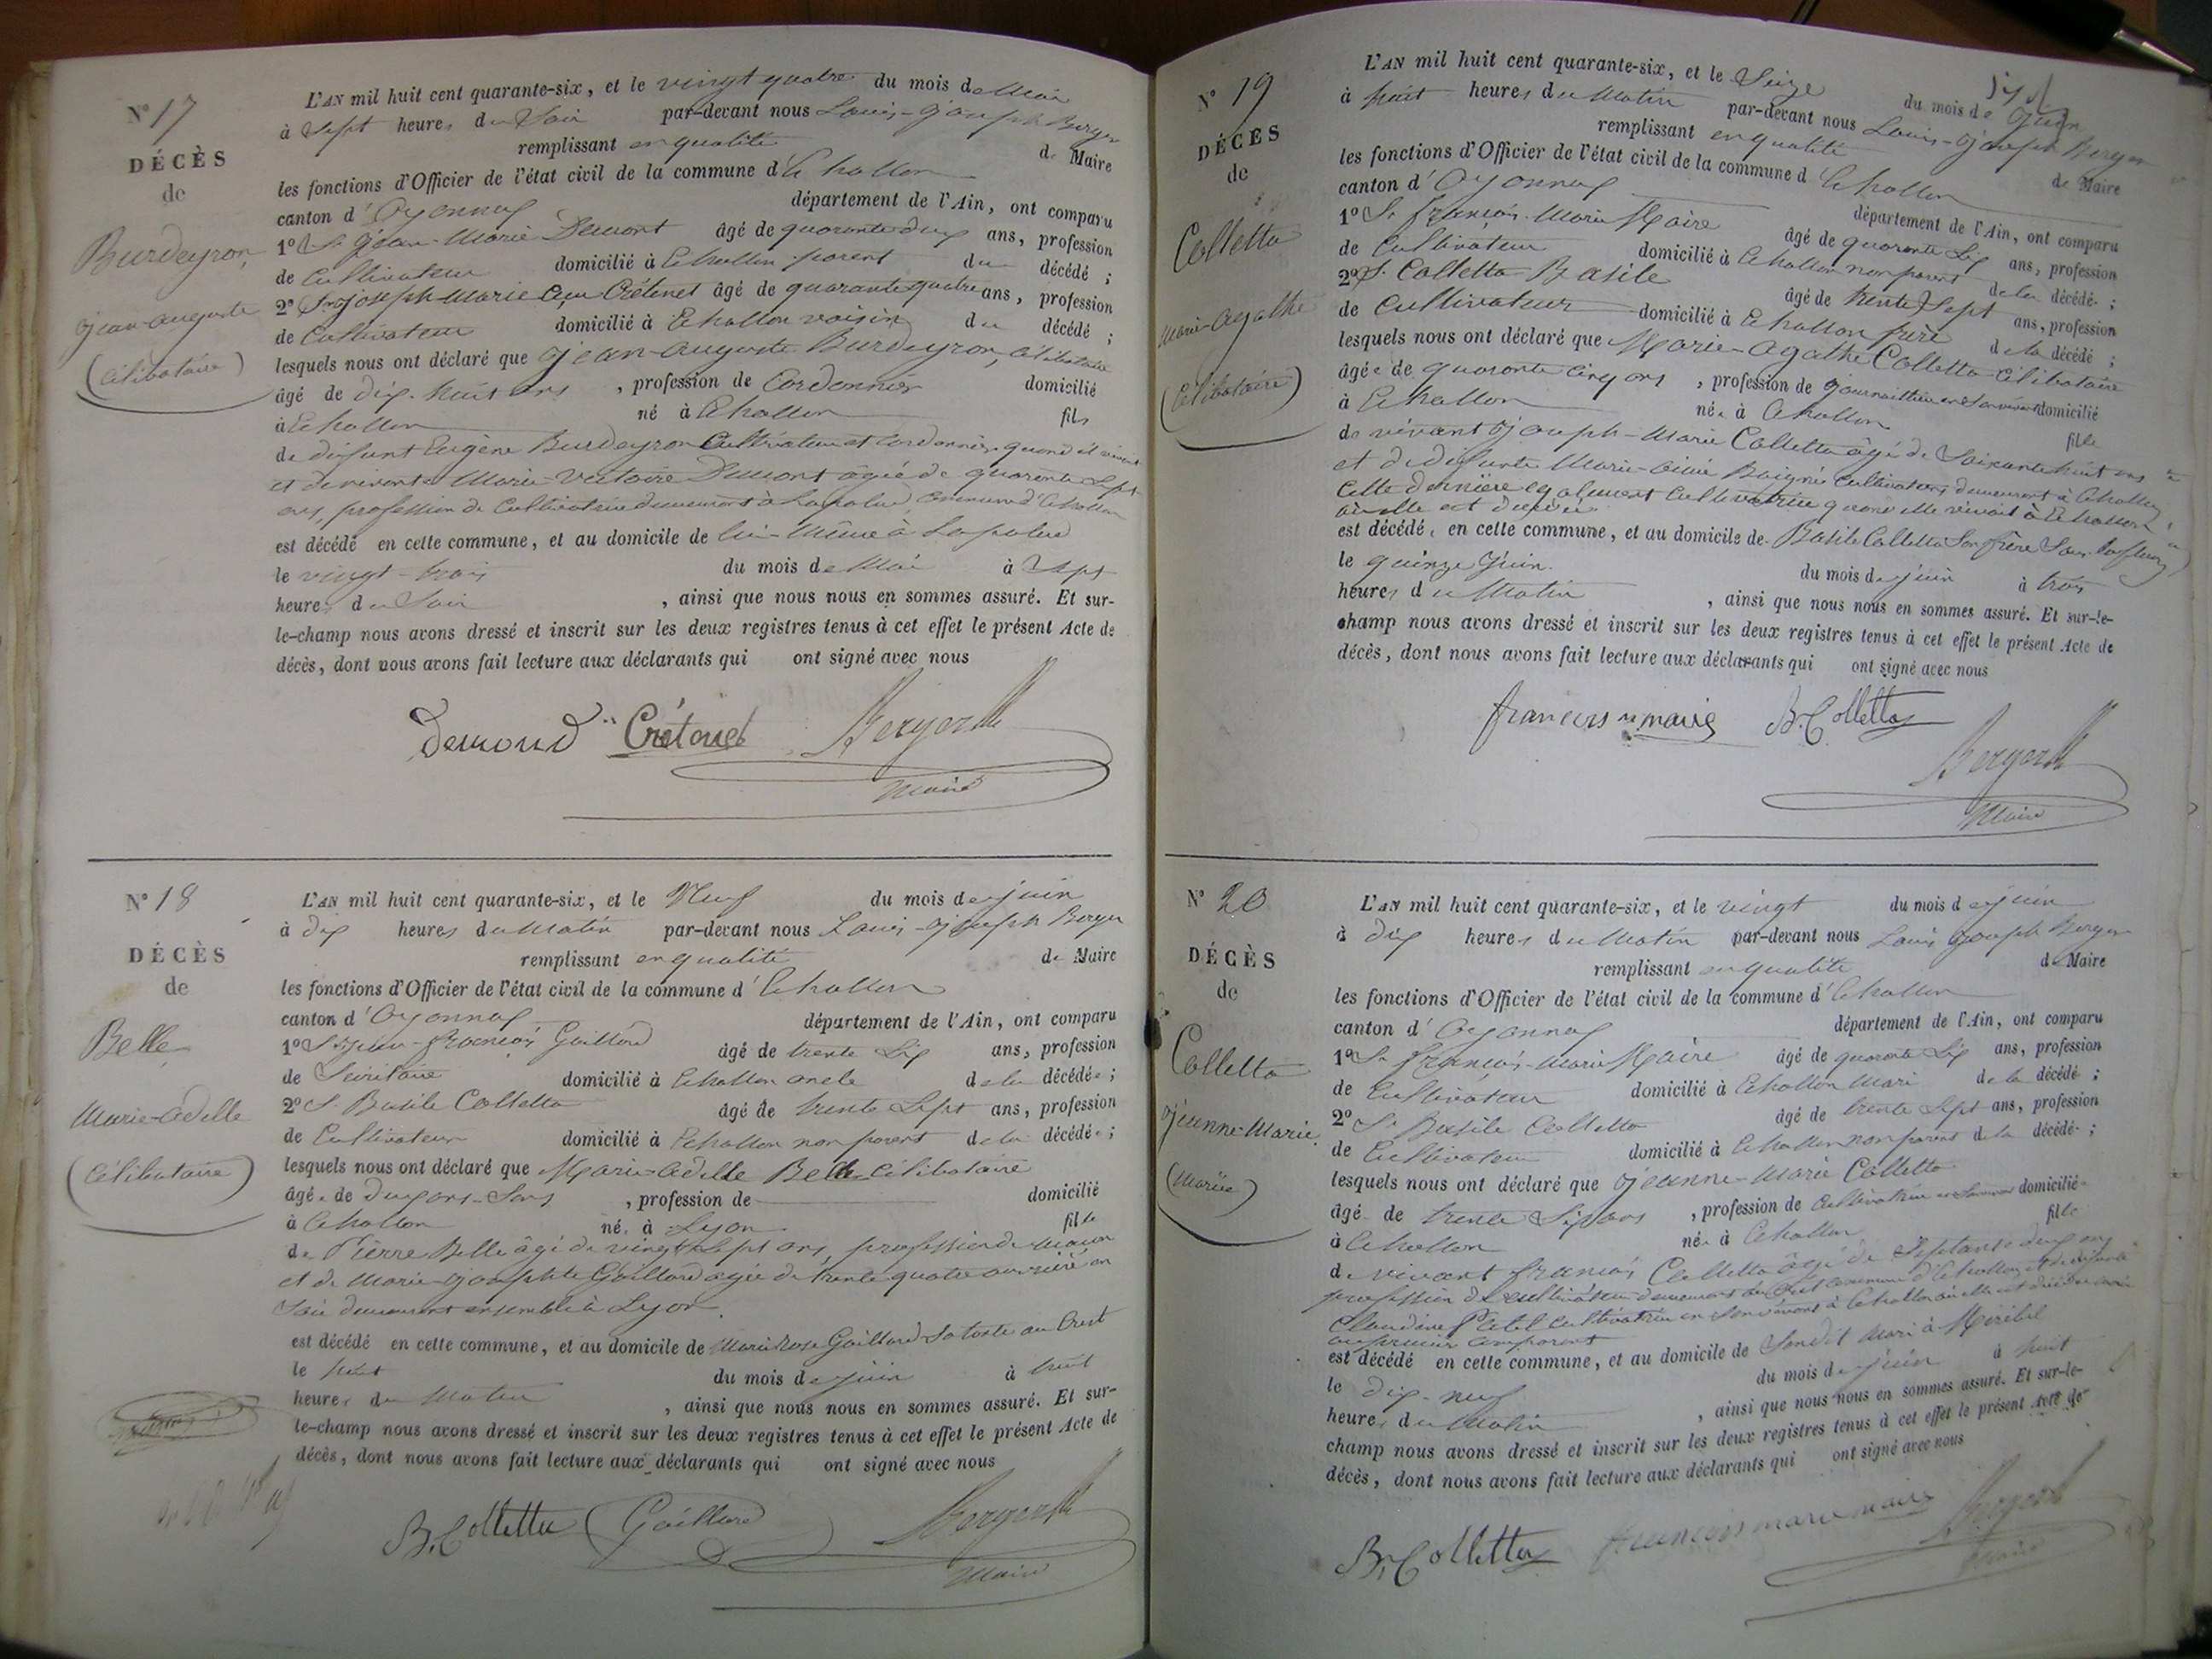 N° 17
DÉCÈS
de
Burdeyron
Jean-Auguste
(Célibataire)
L'AN mil huit cent quarante-six, et le vingt quatre du mois de Mai
à Sept heures du Soir par-devant nous Louis-Joseph Berger
remplissant en qualité de Maire
les fonctions d'Officier de l'état civil de la commune d'Echallon
canton d'Oyonnax département de l'Ain, ont comparu
1° Sr Jean-Marie Demont âgé de quarante deux ans, profession
de Cultivateur domicilié à Echallon parent du décédé ;
2° Sr Joseph-Marie Crétenet âgé de quarante quatre ans, profession
de Cultivateur domicilié à Echallon voisin du décédé ;
lesquels nous ont déclaré que Jean-Auguste Burdeyron, Célibataire
âgé de dix-huit ans, profession de Cordonnier domicilié
à Echallon né à Echallon fils
de défunt Eugène Burdeyron Cultivateur et Cordonnier quand il vivait
et de vivante Marie-Victoire Demont âgée de quarante Sept
ans, profession de Cultivatrice demeurant à Lapalud, Commune d'Echallon
est décédé en cette commune, et au domicile de lui-Même à Lapalud
le vingt-trois du mois de Mai à Sept
heures du Soir, ainsi que nous nous en sommes assuré. Et sur-
le-champ nous avons dressé et inscrit sur les deux registres tenus à cet effet le présent Acte de
décès, dont nous avons fait lecture aux déclarants qui ont signé avec nous
Demond Crétenet Berger
Maire
N° 18
DÉCÈS
de
Belle
Marie-Adelle
(Célibataire)
L'AN mil huit cent quarante-six, et le Neuf du mois de juin
à dix heures du Matin par-devant nous Louis-Joseph Berger
remplissant en qualité de Maire
les fonctions d'Officier de l'état civil de la commune d'Echallon
canton d'Oyonnax département de l'Ain, ont comparu
1° Sr Jean-François Gaillard âgé de trente Six ans, profession
de Secrétaire domicilié à Echallon oncle de la décédée ;
2° Sr Basile Colletta âgé de trente Sept ans, profession
de Cultivateur domicilié à Echallon non parent de la décédée ;
lesquels nous ont déclaré que Marie-Adelle Belle Célibataire
âgée de deux ans - Sans, profession de domicilié
à Echallon née à Lyon fille
de Pierre Belle âgé de vingt Sept ans, profession de Maçon
et de Marie-Josephte Gaillard agée de trente quatre ouvrière en
Soie demeurant ensemble à Lyon
est décédé en cette commune, et au domicile de Marie Rose Gaillard Sa tante au Crest
le huit du mois de juin à huit
heures du Matin, ainsi que nous nous en sommes assuré. Et sur-
le-champ nous avons dressé et inscrit sur les deux registres tenus à cet effet le présent Acte de
décès, dont nous avons fait lecture aux déclarants qui ont signé avec nous
B. Colletta Gaillard Berger
Maire
N° 19
DÉCÈS
de
Colletta
Marie-Agathe
(Célibataire)
L'AN mil huit cent quarante-six, et le Seize du mois de Juin
à huit heures du Matin par-devant nous Louis-Joseph Berger
remplissant en qualité de Maire
les fonctions d'Officier de l'état civil de la commune d Echallon
canton d'Oyonnax département de l'Ain, ont comparu
1° Sr François-Marie Maire âgé de quarante Six ans, profession
de Cultivateur domicilié à Echallon non parent de la décédé ;
2° Sr Colletta Basile âgé de trente Sept ans, profession
de Cultivateur domicilié à Echallon frère de la décédé ;
lesquels nous ont déclaré que Marie-Agathe Colletta Célibataire
âgée de quarante cinq ans, profession de Journalière en Son vivant domicilié
à Echallon née à Echallon fille
de vivant Joseph-Marie Colletta âgé de Soixante huit ans
et de défunte Marie-Aimée Cultivateurs demeurant à Echallon
Cette dernière également Cultivatrice quand elle vivait à Echallon
où elle est décédée
est décédé, en cette commune, et au domicile de Basile Colletta Son frère
le quinze Juin du mois de juin à trois
heures du Matin, ainsi que nous nous en sommes assuré. Et sur-le-
champ nous avons dressé et inscrit sur les deux registres tenus à cet effet le présent Acte de
décès, dont nous avons fait lecture aux déclarants qui ont signé avec nous
francois marie maire B. Colletta
Berger
Maire
N° 20
DÉCÈS
de
Colletta
Jeanne-Marie
(Mariée)
L'AN mil huit cent quarante-six, et le vingt du mois de juin
à dix heures du Matin par-devant nous Louis Joseph Berger
remplissant en qualité de Maire
les fonctions d'Officier de l'état civil de la commune d'Echallon
canton d'Oyonnax département de l'Ain, ont comparu
1° Sr François-Marie Maire âgé de quarante Six ans, profession
de Cultivateur domicilié à Echallon Mari de la décédé ;
2° Sr Basile Colletta âgé de trente Sept ans, profession
de Cultivateur domicilié à Echallon non parent de la décédé ;
lesquels nous ont déclaré que Jeanne-Marie Colletta
âgé de trente Six ans, profession de Cultivatrice en Son vivant domicilié
à Echallon née à Echallon fille
de vivant François Colletta âgé de Septante deux ans
profession de Cultivateur demeurant au Crest Commune d'Echallon et de défunte
Claudine Cultivatrice en Son vivant à Echallon où elle est décédée
au premier comparant
est décédé en cette commune, et au domicile de Sondit Mari à Miribel
le dix-neuf du mois de juin à huit
heures du Matin, ainsi que nous nous en sommes assuré. Et sur-le-
champ nous avons dressé et inscrit sur les deux registres tenus à cet effet le présent Acte de
décès, dont nous avons fait lecture aux déclarants qui ont signé avec nous
B. Colletta francois marie maire Berger
Maire